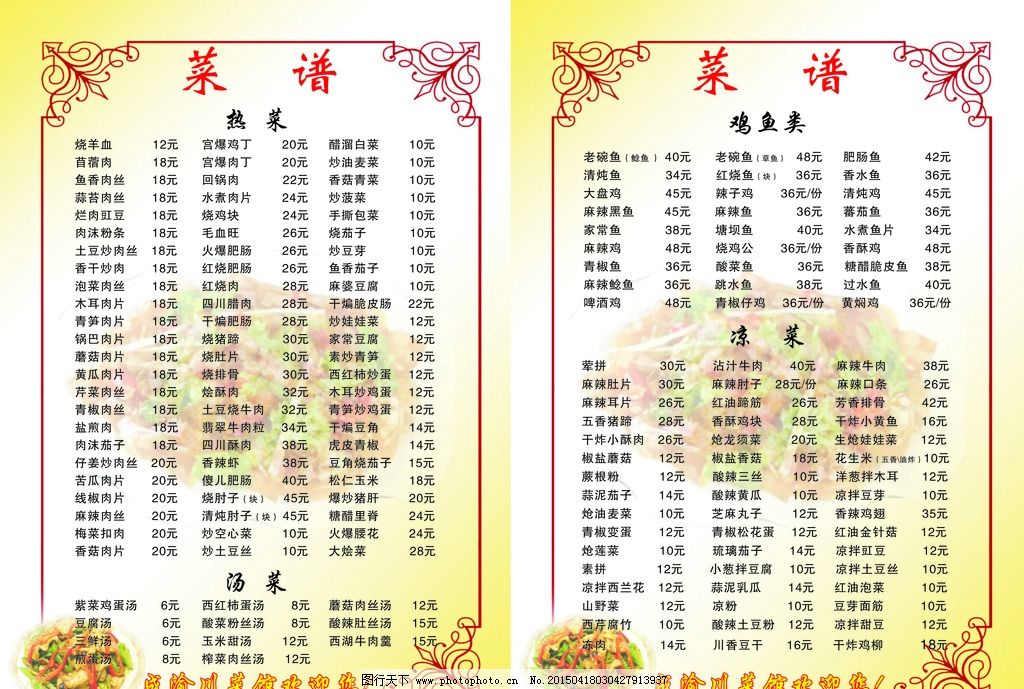 菜 谱
热 菜
烧羊血 12元 宫爆鸡丁 20元 醋溜白菜 10元
苜蓿肉 18元 宫爆肉丁 20元 炒油麦菜 10元
鱼香肉丝 18元 回锅肉 22元 香菇青菜 10元
蒜苔肉丝 18元 水煮肉片 24元 炒菠菜 10元
烂肉豇豆 18元 烧鸡块 24元 手撕包菜 10元
肉沫粉条 18元 毛血旺 26元 烧茄子 10元
土豆炒肉丝 18元 火爆肥肠 26元 炒豆芽 10元
香干炒肉 18元 红烧肥肠 26元 鱼香茄子 10元
泡菜肉丝 18元 红烧肉 28元 麻婆豆腐 10元
木耳肉片 18元 四川腊肉 28元 干煸脆皮肠 22元
青笋肉片 18元 干煸肥肠 28元 炒娃娃菜 12元
锅巴肉片 18元 烧猪蹄 30元 家常豆腐 12元
蘑菇肉片 18元 烧肚片 30元 素炒青笋 12元
黄瓜肉片 18元 烧排骨 30元 西红柿炒蛋 12元
芹菜肉丝 18元 烩酥肉 32元 木耳炒鸡蛋 12元
青椒肉丝 18元 土豆烧牛肉 32元 青笋炒鸡蛋 12元
盐煎肉 18元 翡翠牛肉粒 34元 干煸豆角 14元
肉沫茄子 18元 四川酥肉 38元 虎皮青椒 14元
仔姜炒肉丝 20元 香辣虾 38元 豆角烧茄子 15元
苦瓜肉片 20元 傻儿肥肠 40元 松仁玉米 18元
线椒肉片 20元 烧肘子(块) 45元 爆炒猪肝 20元
麻辣肉丝 20元 清炖肘子(块) 45元 糖醋里脊 24元
梅菜扣肉 20元 炒空心菜 10元 火爆腰花 24元
香菇肉片 20元 炒土豆丝 10元 大烩菜 28元
汤 菜
紫菜鸡蛋汤 6元 西红柿蛋汤 8元 蘑菇肉丝汤 12元
豆腐汤 6元 酸菜粉丝汤 8元 酸辣肚丝汤 15元
三鲜汤 6元 玉米甜汤 12元 西湖牛肉羹 15元
煎蛋汤 8元 榨菜肉丝汤 12元
成渝川菜馆欢迎您!
菜 谱
鸡鱼类
老碗鱼(鲶鱼) 40元 老碗鱼(草鱼) 48元 肥肠鱼 42元
清炖鱼 34元 红烧鱼(块) 36元 香水鱼 36元
大盘鸡 45元 辣子鸡 36元/份 清炖鸡 45元
麻辣黑鱼 45元 麻辣鱼 36元 蕃茄鱼 36元
家常鱼 38元 塘坝鱼 40元 水煮鱼片 34元
麻辣鸡 48元 烧鸡公 36元/份 香酥鸡 48元
青椒鱼 36元 酸菜鱼 36元 糖醋脆皮鱼 38元
麻辣鲶鱼 36元 跳水鱼 38元 过水鱼 40元
啤酒鸡 48元 青椒仔鸡 36元/份 黄焖鸡 36元/份
凉 菜
荤拼 30元 沾汁牛肉 40元 麻辣牛肉 38元
麻辣肚片 30元 麻辣肘子 28元/份 麻辣口条 26元
麻辣耳片 26元 红油蹄筋 26元 芳香排骨 42元
五香猪蹄 28元 香酥鸡块 28元 干炸小黄鱼 16元
干炸小酥肉 26元 炝龙须菜 20元 生炝娃娃菜 12元
椒盐蘑菇 12元 椒盐香菇 18元 花生米(五香\油炸) 10元
蕨根粉 12元 酸辣三丝 10元 洋葱拌木耳 12元
蒜泥茄子 14元 酸辣黄瓜 10元 凉拌豆芽 10元
炝油麦菜 10元 芝麻丸子 12元 香辣鸡翅 35元
青椒变蛋 12元 青椒松花蛋 12元 红油金针菇 12元
炝莲菜 10元 琉璃茄子 14元 凉拌豇豆 12元
素拼 12元 小葱拌豆腐 10元 凉拌土豆丝 10元
凉拌西兰花 12元 蒜泥乳瓜 14元 红油泡菜 10元
山野菜 12元 凉粉 10元 豆芽面筋 10元
西芹腐竹 10元 酸辣土豆粉 12元 凉拌甜豆 12元
冻肉 14元 川香豆干 16元 干炸鸡柳 18元
成渝川菜馆欢迎您!
图行天下 www.photophoto.cn No.20150418030427913937